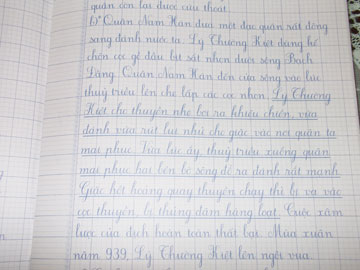 quân còn lại được cứu thoát.
b) Quân Nam Hán đưa một đạo quân rất đông
sang đánh nước ta. Lý Thường Kiệt dùng kế
chôn cọc gỗ đầu bịt sắt nhọn dưới sông Bạch
Đằng. Quân Nam Hán đến cửa sông vào lúc
thuỷ triều lên che lấp các cọc nhọn. Lý Thường
Kiệt cho thuyền nhẹ bơi ra khiêu chiến, vừa
đánh vừa rút lui nhử cho giặc vào nơi quân ta
mai phục. Vừa lúc ấy thuỷ triều xuống quân
mai phục hai bên bờ sông đổ ra đánh rất mạnh.
Giặc hốt hoảng quay thuyền chạy thì bị va vào
cọc thuyền, bị thủng đắm hàng loạt. Cuộc xâm
lược của địch hoàn toàn thất bại. Mùa xuân
năm 939, Lý Thường Kiệt lên ngôi vua.